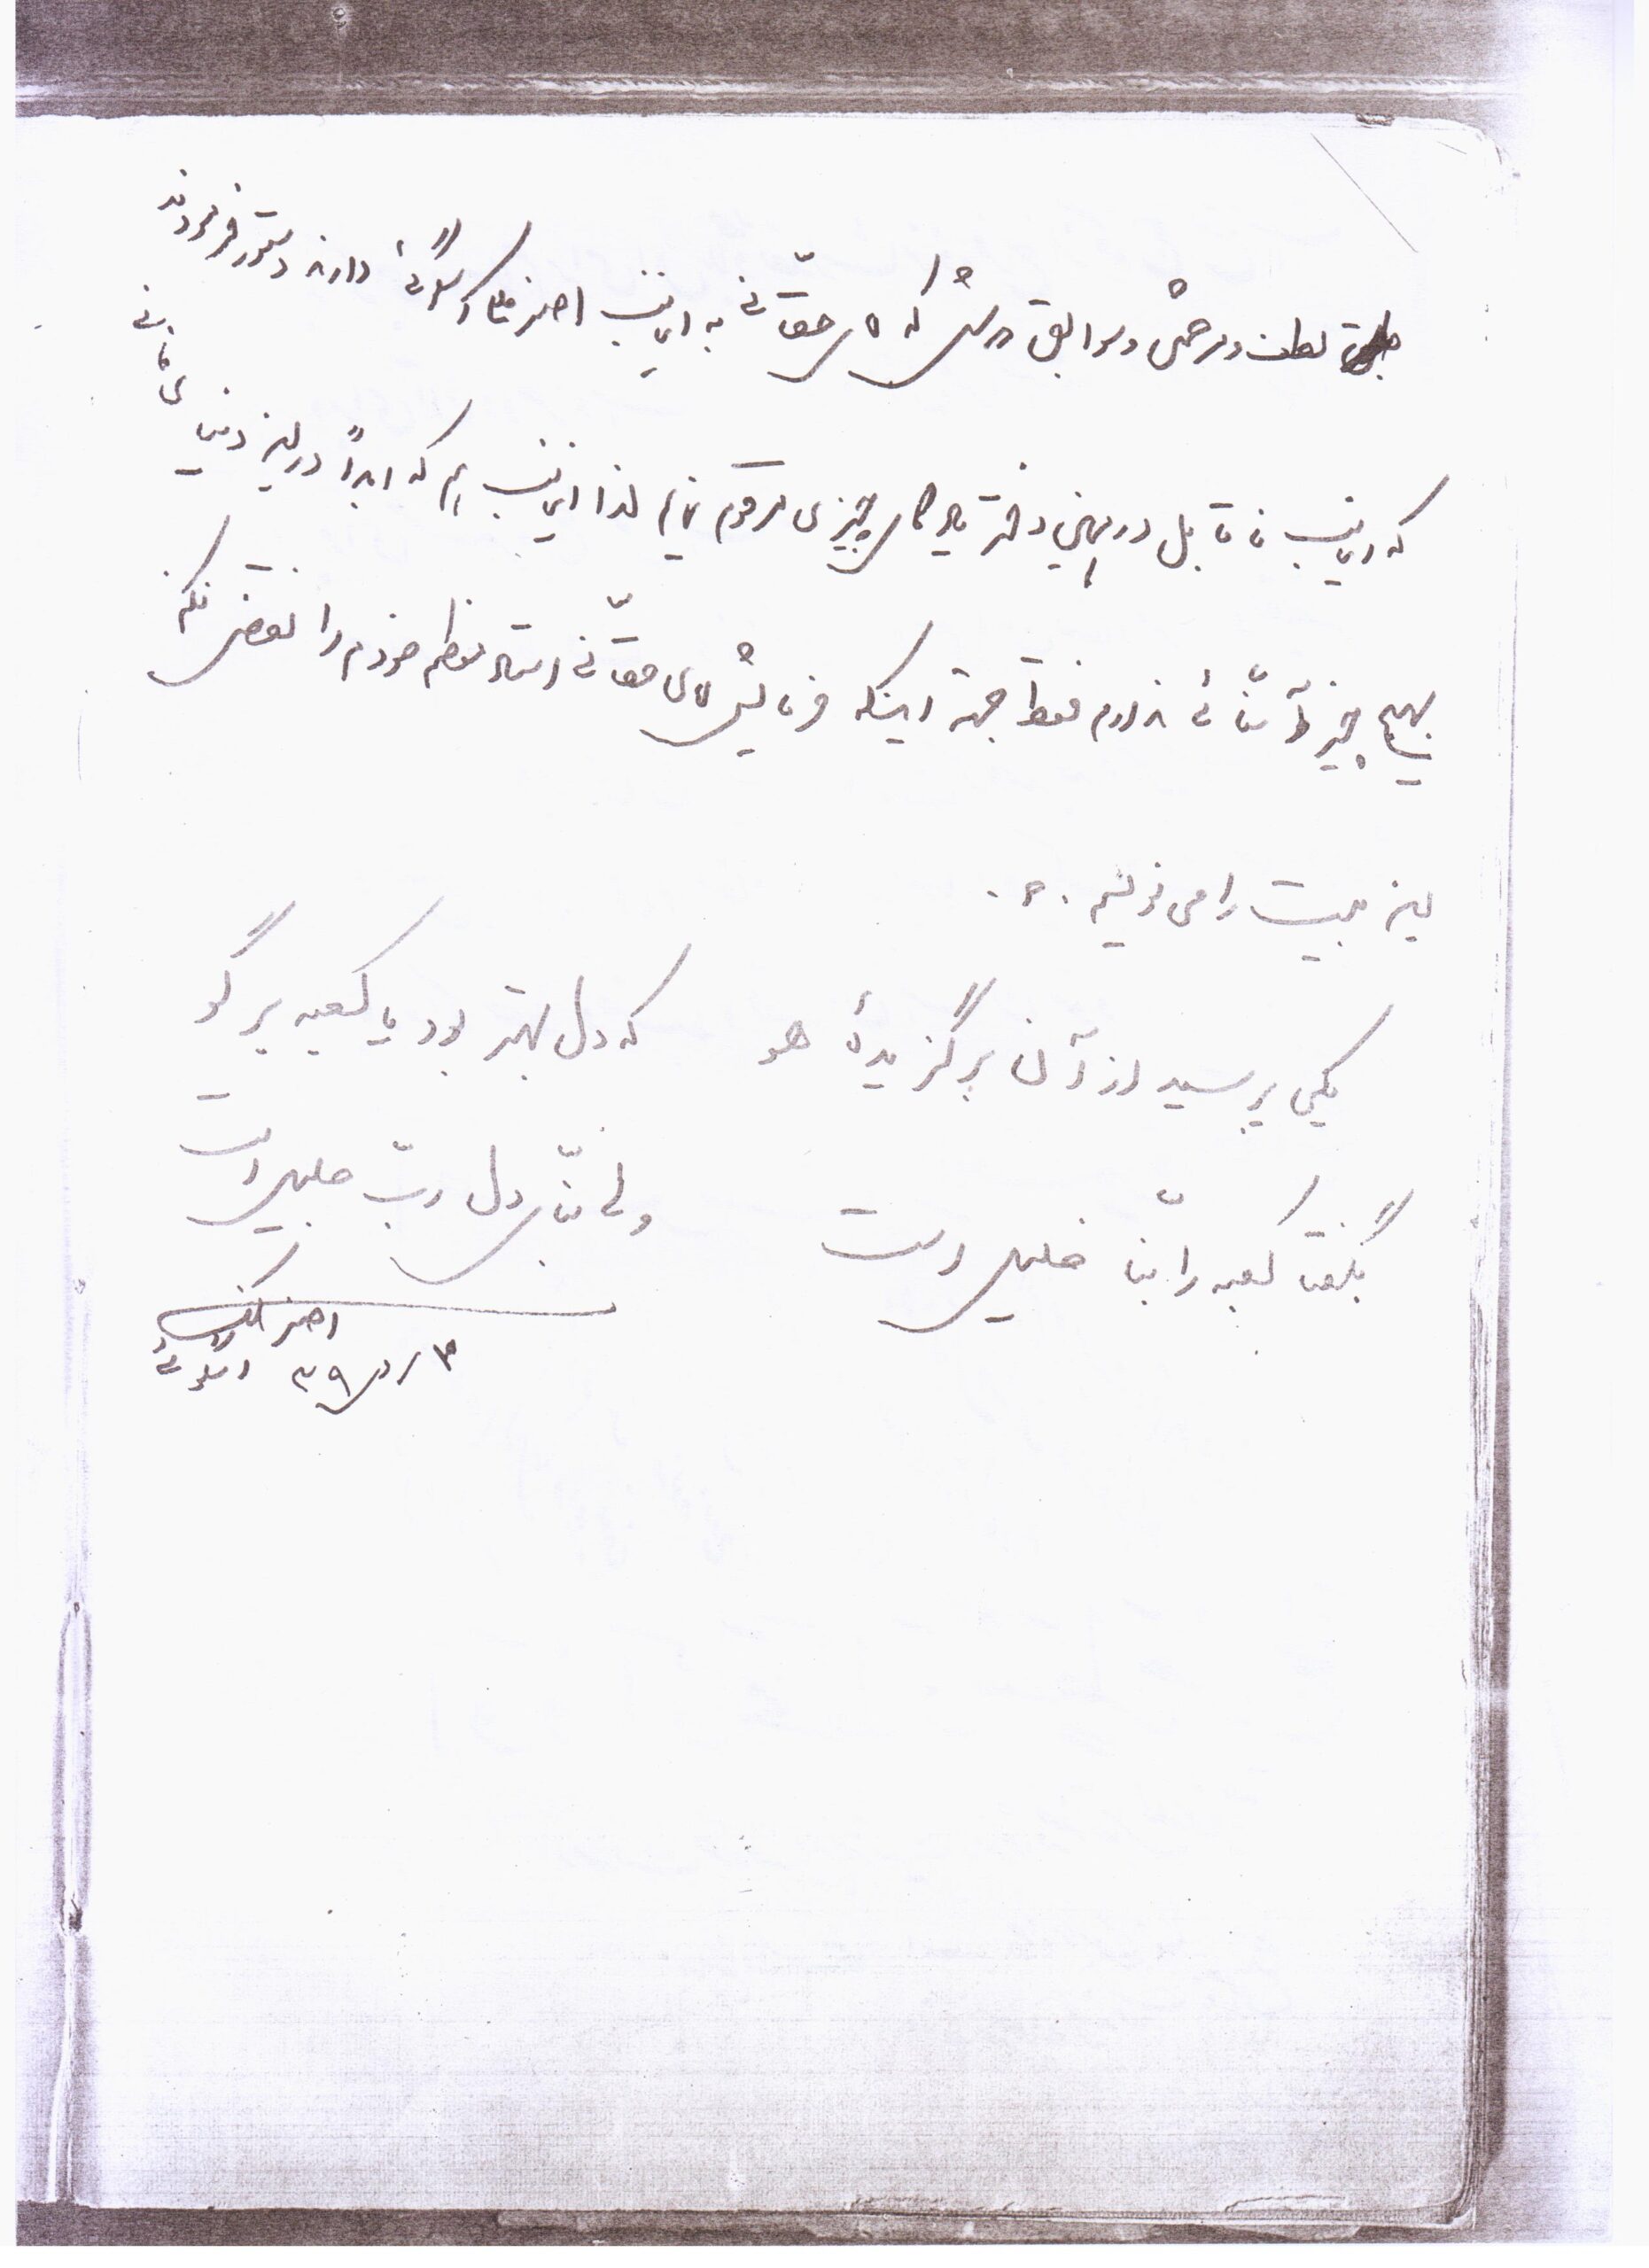 لطف و مرحمتی و سوابق درویشی که آقای حقّانی به اینجانب اصغر ملک اسکوئی دارند دستور فرمودند
که اینجانب ناقابل در همین دفتر یادگاری چیزی مرقوم نمایم لذا اینجانب هم که ابداً در این دنیای فانی
بهیچ چیز آشنائی ندارم فقط جهة اینکه فرمایش آقای حقّانی استاد معظم خودم را نقض نکنم
این بیت را می نویسم.
یکی پرسید از آن برگزیدهٔ هو که دل بهتر بود یا کعبه برگو
بگفتا کعبه را بنّا خلیل است ولی بنّای دل ربّ جلیل است
اصغر
اسکوئی ۳۹